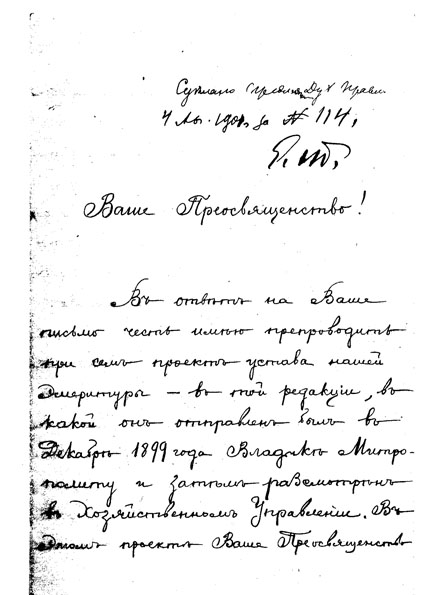 № 114,
Ваше Преосвященство!
Въ отвѣтъ на Ваше
письмо честь имѣю препроводить
при семъ проектъ устава нашей
Эмеритуры — въ той редакціи, въ
какой онъ отправленъ былъ въ
Декабрѣ 1899 года Владыкѣ Митро-
политу и затѣмъ разсмотрѣнъ
въ Хозяйственномъ Управленіи. Въ
этомъ проектѣ Ваше Преосвященство